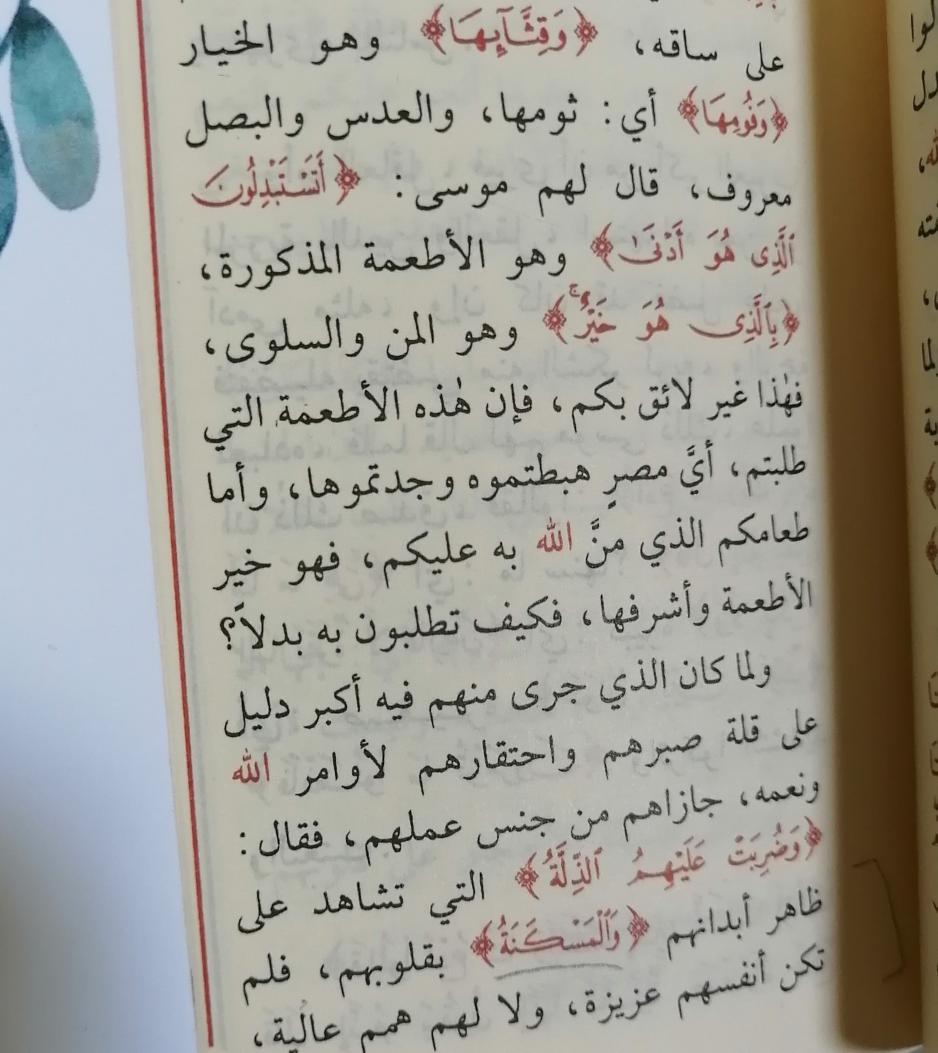 على ساقه، ﴿وَقِثَّآئِهَا﴾ وهو الخيار
﴿وَفُومِهَا﴾ أي: ثومها، والعدس والبصل
معروف، قال لهم موسى: ﴿أَتَسْتَبْدِلُونَ
ٱلَّذِى هُوَ أَدْنَىٰ﴾ وهو الأطعمة المذكورة،
﴿بِٱلَّذِى هُوَ خَيْرٌۚ﴾ وهو المن والسلوى،
فهٰذا غير لائق بكم، فإن هٰذه الأطعمة التي
طلبتم، أيَّ مصرٍ هبطتموه وجدتموها، وأما
طعامكم الذي منَّ الله به عليكم، فهو خير
الأطعمة وأشرفها، فكيف تطلبون به بدلاً؟
ولما كان الذي جرى منهم فيه أكبر دليل
على قلة صبرهم واحتقارهم لأوامر الله
ونعمه، جازاهم من جنس عملهم، فقال:
﴿وَضُرِبَتْ عَلَيْهِمُ ٱلذِّلَّةُ﴾ التي تشاهد على
ظاهر أبدانهم ﴿وَٱلْمَسْكَنَةُ﴾ بقلوبهم، فلم
تكن أنفسهم عزيزة، ولا لهم همم عالية،